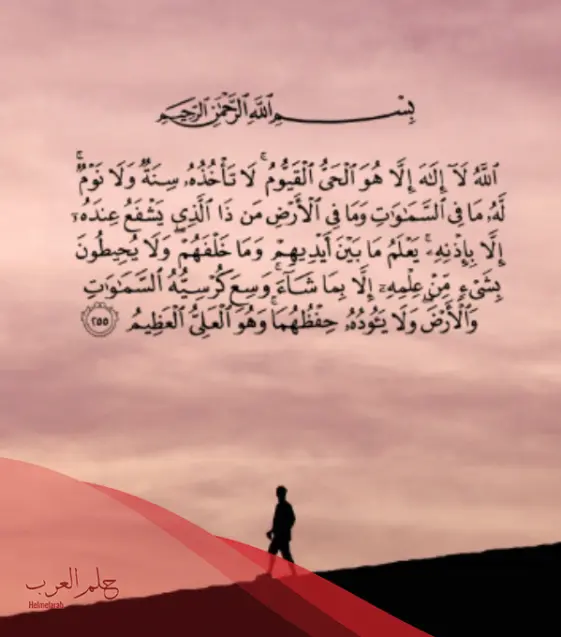 بِسْمِ اللَّهِ الرَّحْمَٰنِ الرَّحِيمِ
اللَّهُ لَآ إِلَٰهَ إِلَّا هُوَ الْحَيُّ الْقَيُّومُ ۚ لَا تَأْخُذُهُۥ سِنَةٌ وَلَا نَوْمٌ ۚ
لَّهُۥ مَا فِي السَّمَٰوَٰتِ وَمَا فِي الْأَرْضِ مَن ذَا الَّذِي يَشْفَعُ عِندَهُۥٓ
إِلَّا بِإِذْنِهِۦ ۚ يَعْلَمُ مَا بَيْنَ أَيْدِيهِمْ وَمَا خَلْفَهُمْ ۖ وَلَا يُحِيطُونَ
بِشَيْءٍ مِّنْ عِلْمِهِۦٓ إِلَّا بِمَا شَآءَ ۚ وَسِعَ كُرْسِيُّهُ السَّمَٰوَٰتِ
وَالْأَرْضَ ۖ وَلَا يَـُٔودُهُۥ حِفْظُهُمَا ۚ وَهُوَ الْعَلِيُّ الْعَظِيمُ ٢٥٥
حلم العرب
Helmelarab